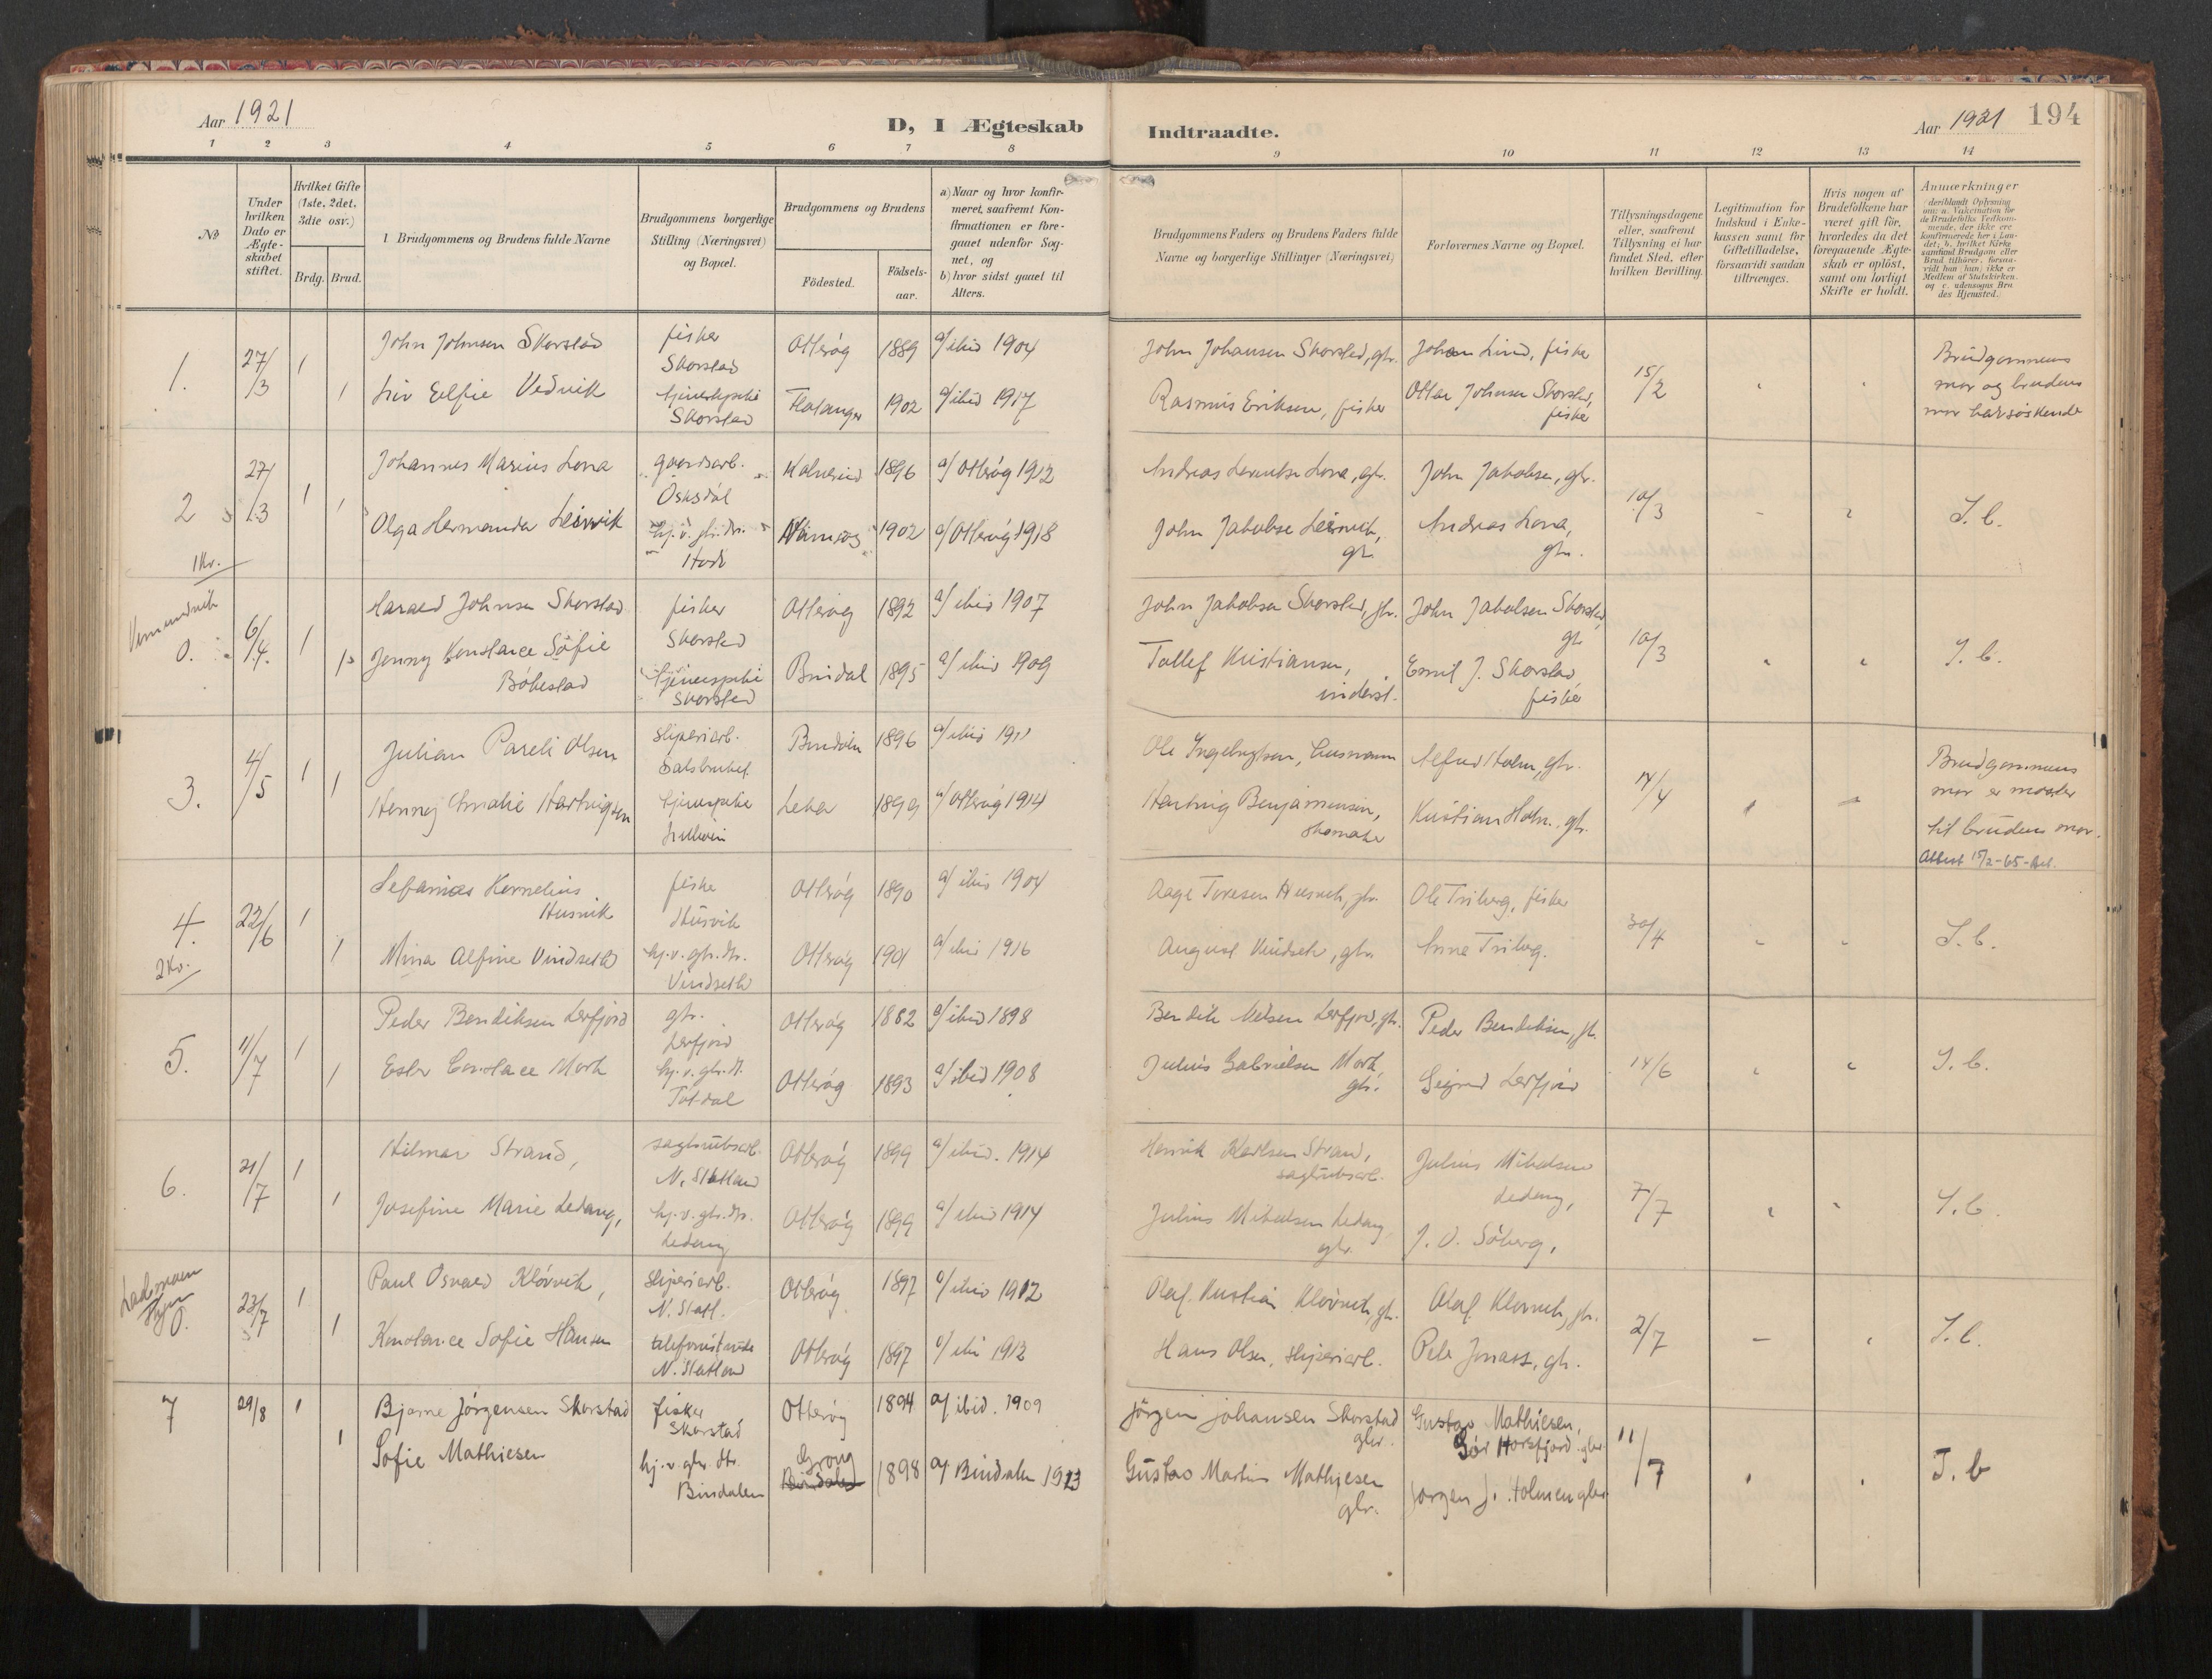 Aar 1921
D, I Ægteskab
Indtraadte.
Aar 1921
194
1 2 3 4 5 6 7 8 9 10 11 12 13 14
No
Under
hvilken
Dato er
Ægte-
skabet
stiftet.
Hvilket Gifte
(1ste, 2det,
3die osv.)
Brdg. Brud.
Brudgommens og Brudens fulde Navne
Brudgommens borgerlige
Stilling (Næringsvei)
og Bopæl.
Brudgommens og Brudens
Födested.
Födsels-
aar.
a) Naar og hvor konfir-
meret, saafremt Kon-
firmationen er fore-
gaaet udenfor Sog-
net, og
b) hvor sidst gaaet til
Alters.
Brudgommens Faders og Brudens Faders fulde
Navne og borgerlige Stillinger (Næringsvei)
Forlovernes Navne og Bopæl.
Tillysningsdagene
eller, saafremt
Tillysning ei har
fundet Sted, efter
hvilken Bevilling.
Legitimation for
Indskud i Enke-
kassen samt for
Giftetilladelse,
forsaavidt saadan
tiltrænges.
Hvis nogen af
Brudefolkene har
været gift før,
hvorledes da det
foregaaende Ægte-
skab er oplöst,
samt om lovligt
Skifte er holdt.
Anmærkninger
(deriblandt Oplysning
om: a. Vaccination for
de Brudefolks Vedkom-
mende, der ikke ere
konfirmerede her i Lan-
det; b. hvilket Kirke-
samfund Brudgom eller
Brud tilhörer, forsaa-
vidt han (hun) ikke er
Medlem af Statskirken.
og c. udensogns Bru-
des Hjemsted.)
1. 27/3 1 John Johnsen Skorstad fiker Skorstad Otterøy 1889 a/ ibid 1904 John Johansen Skorstad, gbr. Johan Lind, fisker 15/2 Brudgommens
1 Liv Elfie Vedvik tjenestepike Skorstad Flatanger 1902 a/ ibid 1917 Rasmus Eriksen, fisker Ottar Johnsen Skorstad, fisker mor og brudens
mor halvsøskende
2 27/3 1 Johannes Marius Lona gaardsarb. Kolvereid 1896 a/ Otterøy 1912 Andreas Lona, gbr. John Jakobsen, gbr. 10/3 I. b.
1 Olga Hermanda Leirvik hj. v. gbr. dtr. 1902 a/ Otterøy 1918 John Jakobsen Leirvik, gbr. Andreas Lona, gbr.
1 Kv.
0. 6/4. 1 Harald Johnsen Skorstad fisker Skorstad Otterøy 1892 a/ ibid 1907 John Jakobsen Skorstad, gbr. John Jakobsen Skorstad, gbr 10/3 I. b.
1 Jenny Konstance Sofie Bøkestad tjenestepike Skorstad Bindal 1895 a/ ibid 1909 Tollef Kristiansen, inderst. Emil J. Skorstad fisker
3. 4/5 1 Julian Pareli Olsen sliperiarb. Salsbruket Bindalen 1896 a/ ibid 1911 Ole Ingebrigtsen, husmann Alfred Holm, gbr. 14/4 Brudgommens
1 Henny Amalie Hartvigsen tjenestepike Leka 1899 a/ Otterøy 1914 Hartvig Benjaminsen, skomaker Kristian Holm. gbr. mor er moster
til brudens mor.
Attest 15/2-65-
4. 22/6 1 Kornelius Husvik fisker Husvik Otterøy 1890 a/ ibid 1904 Aage Toresen Husvik, gbr. Ole Triberg, fisker 30/4 I. b.
1 Mina Alfine Vindseth hj. v. gbr. dtr. Vindseth Otterøy 1901 a/ ibid 1916 August Vindseth, gbr. Anna Triberg.
2 Kv.
5. 11/7 1 Peder Bendiksen Lerfjord gbr. Lerfjord Otterøy 1882 a/ ibid 1898 Bendik Nelsen Lerfjord, gbr. Peder Bendiksen, gbr. 14/6 I. b.
1 Ester Constance Mork hj. v. gbr. dt. Totdal Otterøy 1893 a/ ibid 1908 Julius Gabrielsen Mork, gbr. Sigurd Lerfjord
6. 21/7 1 Hilmar Strand, sagbruksarb. N. Statland Otterøy 1899 a/ ibid. 1914 Henrik Karlsen Strand, sagbruksarb. Julius Mikalsen Ledang, 7/7 I. b.
1 Josefine Marie Ledang, hj. v. gbr. dtr. Ledang Otterøy 1899 a/ ibid 1914 Julius Mikalsen Ledang gbr. J. O. Søberg,
0. 23/7 1 Paul Osvald Kløvvik, sliperiarb. N. Statl. Otterøy 1897 a/ ibid 1912 Olaf Kristian Kløvvik, gbr. Olaf Kløvvik, gbr. 2/7 I. b.
1 Konstance Sofie Hansen N. Statland Otterøy 1897 a/ ibid 1912 Hans Olsen, sliperiarb. Peter Jonass, gbr.
7 29/8 1 Bjarne Jörgensen Skorstad fisker Skorstad Otterøy 1894 a/ ibid. 1909 Jörgen Johansen Skorstad gbr. Gustav Mathiesen, Sör Horsfjord gbr 11/7 I. b
1 Sofie Mathiesen hj. v. gbr. dtr. Bindalen Grong Bindalen 1898 a/ Bindalen 1913 Gustav Martin Mathiesen gbr. Jørgen J. Holmen gbr